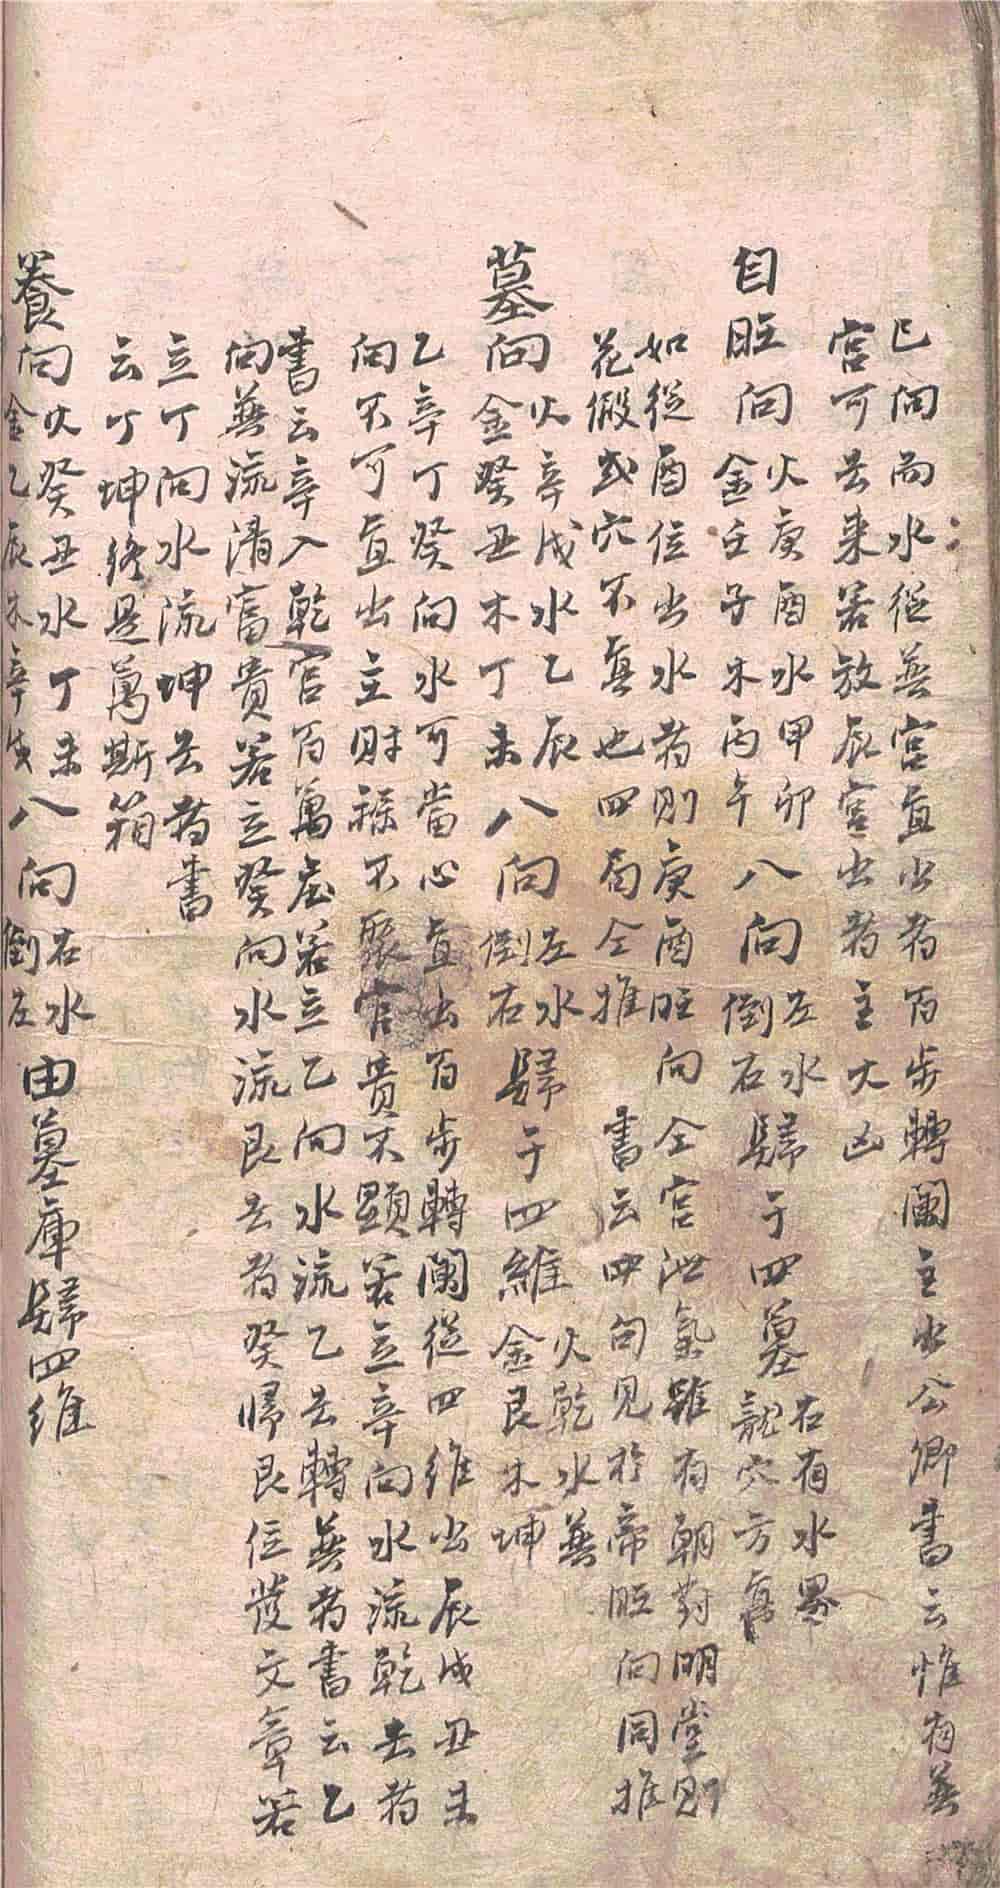 巳向而水從巽宮直出者百步轉闌主出公卿書云惟有巽
宮可去来若放辰宮出者主大凶
自旺向火庚酉水甲卯金壬子木丙午八向左水倒右歸于四墓右有水界龍穴方真
如從酉位出水者則庚酉旺向仝宮泄氣雖有朝對明堂則
花假或穴不真也四局仝推 書云四句見於帝旺向同推
墓向火辛戌水乙辰金癸丑木丁未八向左水倒右歸于四維火乾水巽金艮木坤
乙辛丁癸向水可當心直出百步轉闌從四維出辰戌丑未
向不可直出主財祿不聚官貴不顯若立辛向水流乾去者
書云辛入乾宮百萬庄若立乙向水流乙去轉巽者書云乙
向巽流清富貴若立癸向水流艮去者癸歸艮位發文章若
立丁向水流坤去者書
云丁坤終是萬斯箱
養向火癸丑水丁未金乙辰木辛戌八向右水倒左由墓庫歸四維